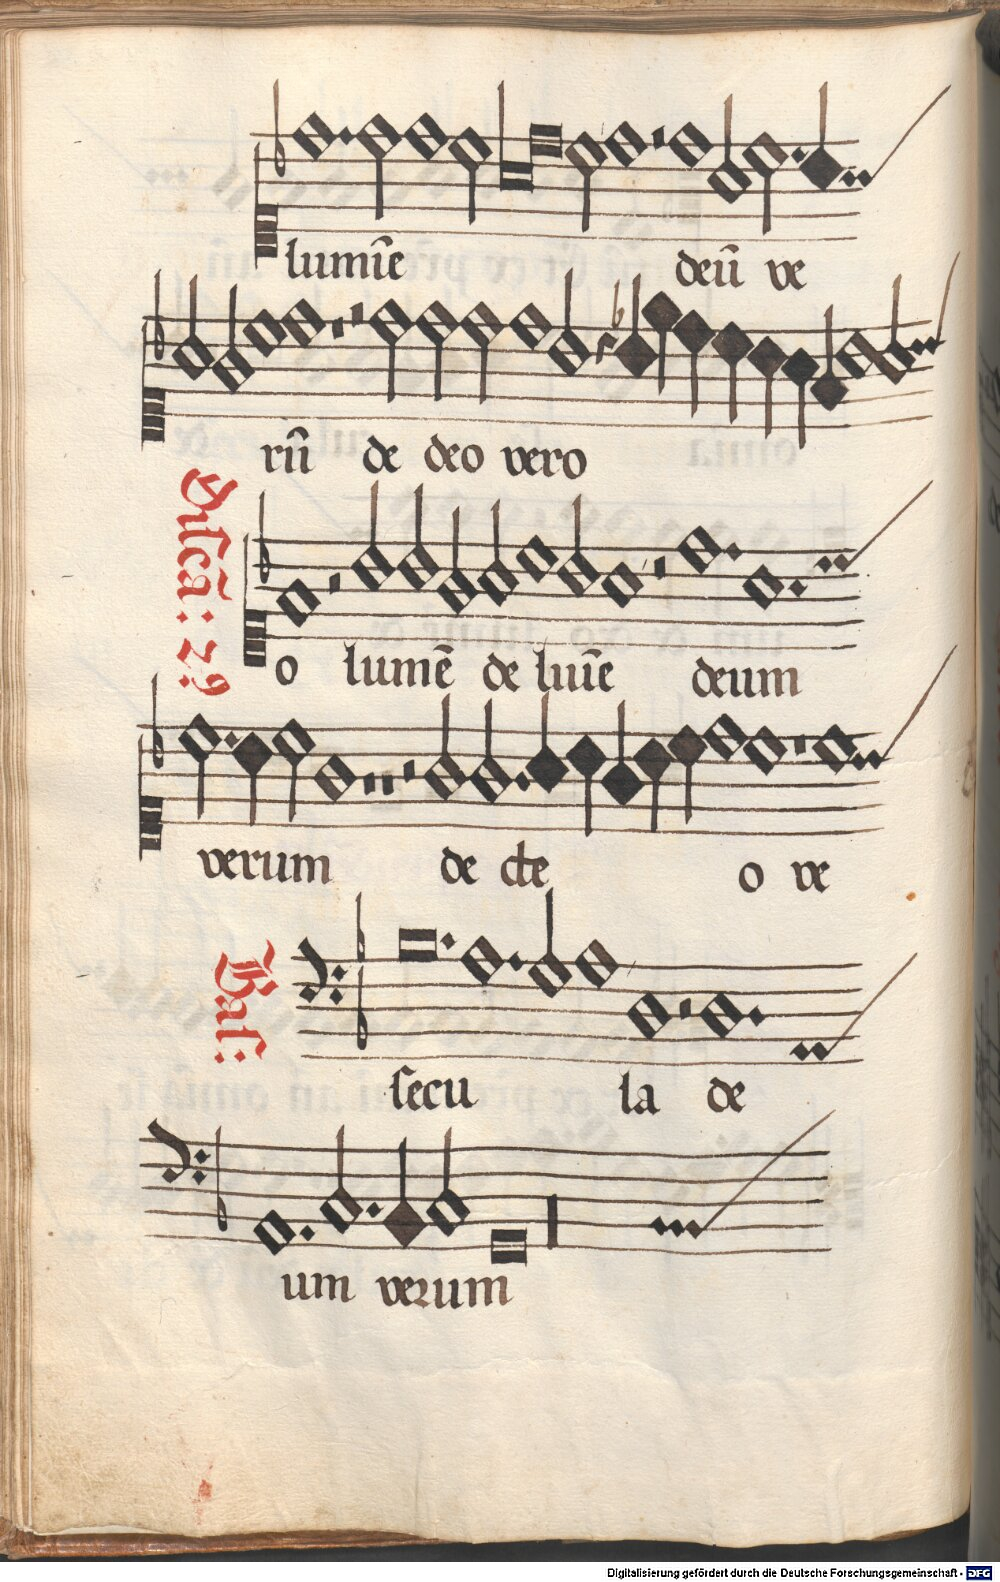 lumīe deū ve
rū de deo vero
Discā: 29
o lumē de luīe deum
verum de de o ve
Bas:
secu la de
um verum
Digitalisierung gefördert durch die Deutsche Forschungsgemeinschaft - DFG